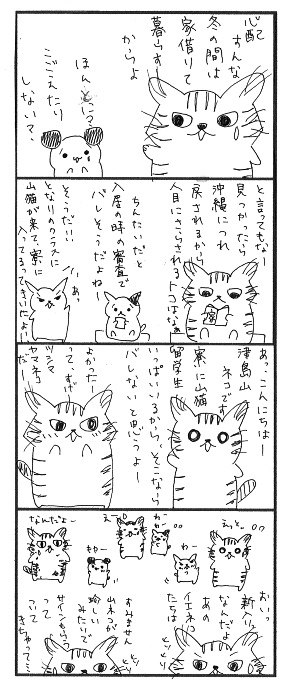 心配
すんな
冬の間は
家借りて
暮らす
からよ
ほんとに?
こごえたり
しない?
と言ってもなー
見つかったら
沖縄につれ
戻されるから
人目にさらされるトコはなぁ
ちんたいだと
入居の時の審査で
バレそうだよねー
そうだ!!
となりのクラスに
山猫が来て、寮に
入ってるっていってたよ!
あっ
あっ、こんにちはー
津島山
ネコです
寮に山猫
いっぱいいるから、そこなら
バレないと思うよー
留学生
よかったー
って、すげー
ツシマ
ヤマネコ
だ!
えっと。
わー
わー
えー
きゃー
なんだよー
おいっ
新入り
なんだよ
あの
イエネコ
たちは
すみません
山ネコが
珍しい
みたいで
サインもらう
って
ついて
きちゃって…
ヒソヒソ
ヒソヒソ